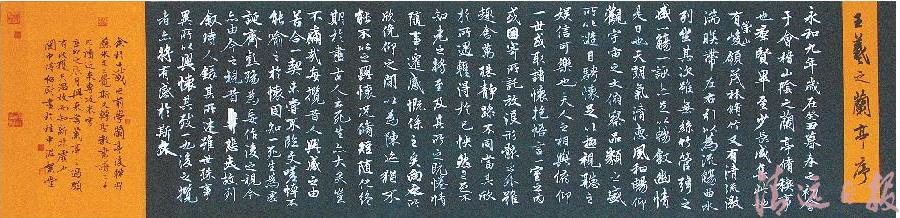 王羲之蘭亭序
永和九年歲在癸丑暮春之初會
于會稽山陰之蘭亭脩稧事
也羣賢畢至少長咸集此地
有崇山峻領茂林脩竹又有清流激
湍暎帶左右引以為流觴曲水
列坐其次雖無絲竹管絃之
盛一觴一詠亦足以暢敘幽情
是日也天朗氣清惠風和暢仰
觀宇宙之大俯察品類之盛
所以遊目騁懷足以極視聽之
娛信可樂也夫人之相與俯仰
一世或取諸懷抱悟言一室之內
或因寄所託放浪形骸之外雖
趣舍萬殊靜躁不同當其欣
於所遇暫得於己怏然自足不
知老之將至及其所之既惓情
隨事遷感慨係之矣向之所
欣俛仰之閒以為陳迹猶不
能不以之興懷況脩短隨化終
期於盡古人云死生亦大矣豈
不痛哉每攬昔人興感之由
若合一契未嘗不臨文嗟悼不
能喻之於懷固知一死生為虛
誕齊彭殤為妄作後之視今
亦由今之視昔悲夫故列
敘時人錄其所述雖世殊事
異所以興懷其致一也後之攬
者亦將有感於斯文
清远日报